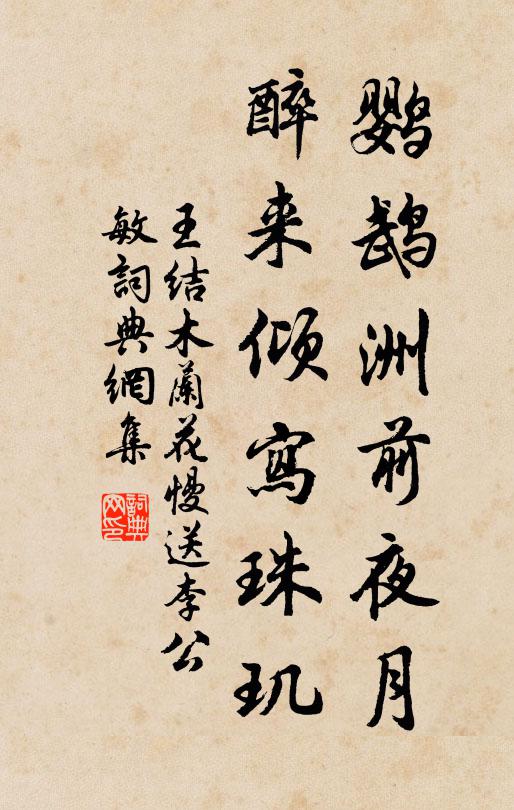 鹦鹉洲前夜月
醉来倾寫珠玑
王结木蘭花慢送李公
敏詞典網集
詞典
网印